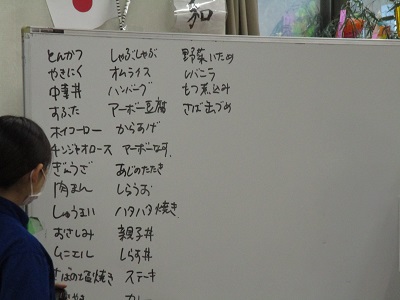 とんかつ
やきにく
中華丼
すぶた
ホイコーロー
チンジャオロース
ぎょうざ
肉まん
しゅうまい
おさしみ
ムニエル
さばのみそ焼き
しゃぶしゃぶ
オムライス
ハンバーグ
マーボー豆腐
からあげ
マーボーなす
あじのたたき
しらうお
ハタハタ焼き
親子丼
しらす丼
ステーキ
カレー
野菜いため
レバニラ
もつ煮込み
さば缶づめ
和